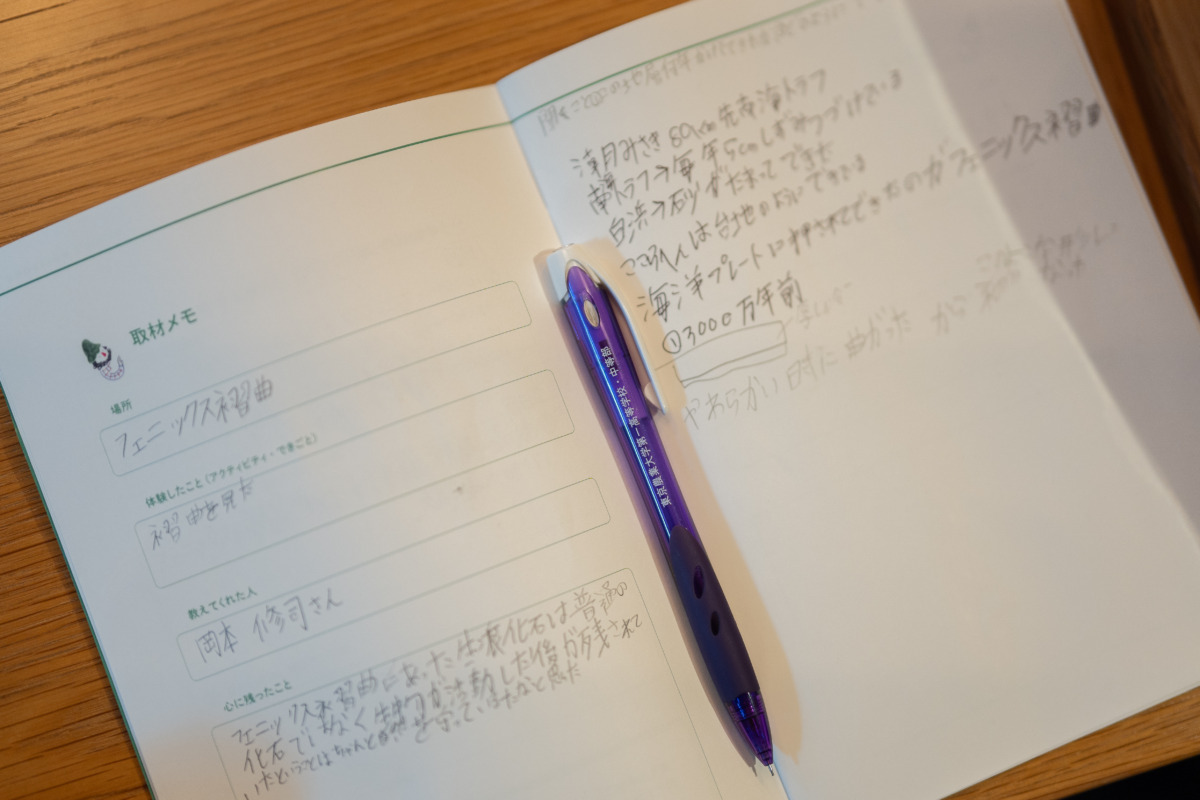 取材メモ
場所
フェニックス褶曲
体験したこと(アクティビティ・できごと)
褶曲を見た
教えてくれた人
岡本 修司さん
心に残ったこと
フェニックス褶曲にあった生痕化石は普通の
化石ではなく生物が活動した痕が残されて
いたということはちゃんと
と思った
80km先南海トラフ
南海トラフ→毎年5cmしずみつづけている
白浜→砂がたまってできた
海洋プレートに押されてできたのがフェニックス褶曲
①3000万年前
やわらかい時に曲がった から
東京農業大学第一高等学校・中等部